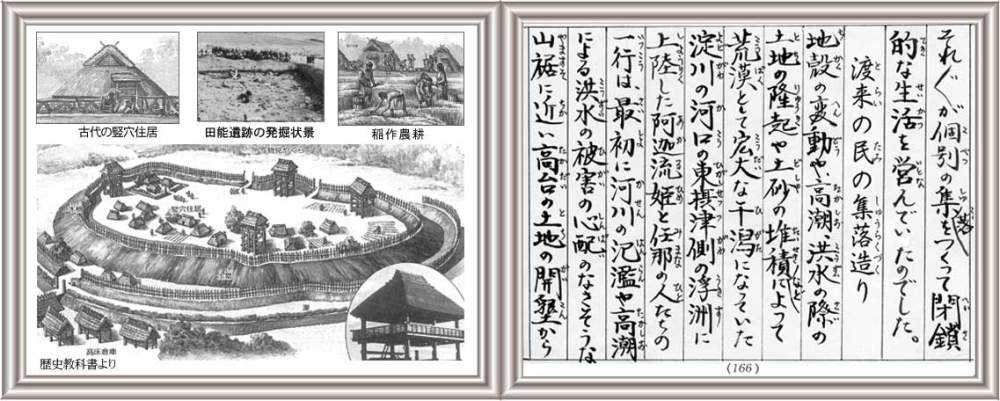 古代の竪穴住居
田能遺跡の発掘状景
稲作農耕
物見やぐら
竪穴住居
高床倉庫
歴史教科書より
それぐが個別の集落をつくって閉鎖
的な生活を営んでいたのでした。
渡来の民の集落造り
地殻の変動や、高潮、洪水の際の
土地の隆起や土砂の堆積によって
荒漠とした宏大な干潟になっていた
淀川の河口の東摂津側の浮洲に
上陸した阿迦流姫と任那の人たちの
一行は、最初に河川の氾濫や高潮
による洪水の被害の心配のなさそうな
山裾に近い高台の土地の開墾から
(166)